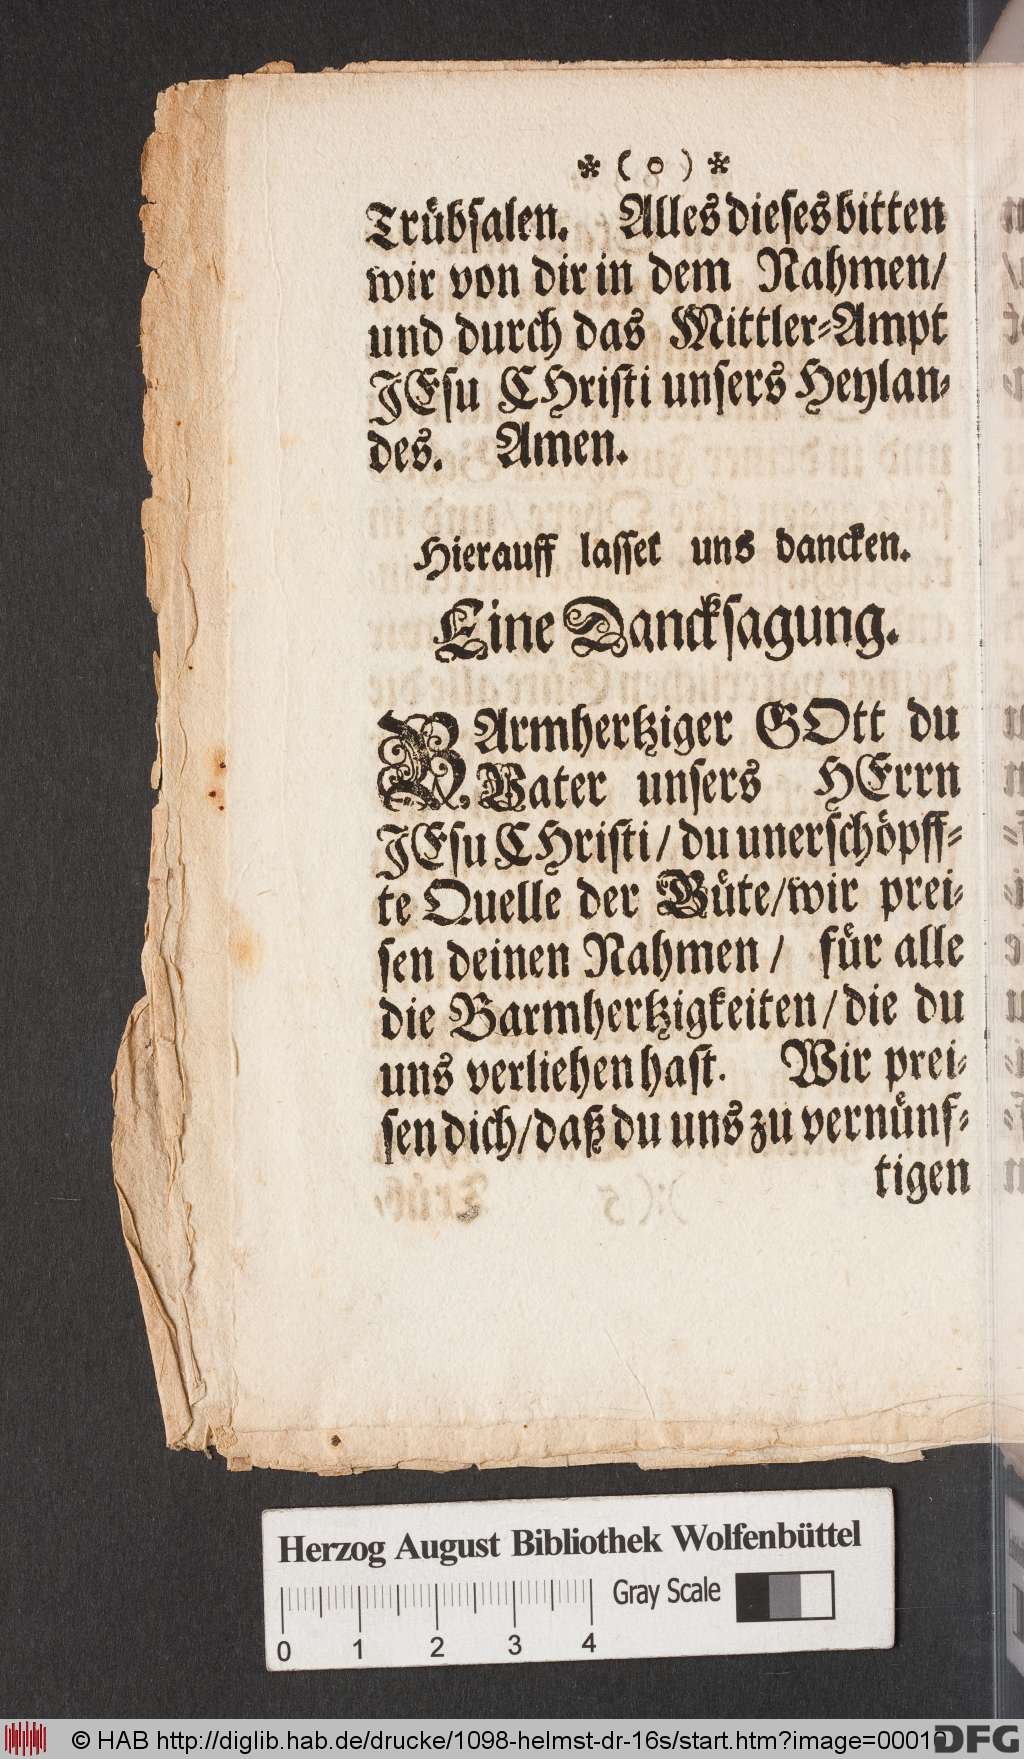 * ( o ) *
Trübsalen. Alles dieses bitten
wir von dir in dem Nahmen/
und durch das Mittler-Ampt
JEsu CHristi unsers Heylan-
des. Amen.
Hierauff lasset uns dancken.
Eine Dancksagung.
BArmhertziger GOtt du
Vater unsers HErrn
JEsu CHristi/ du unerschöpff-
te Quelle der Güte/ wir prei-
sen deinen Nahmen/ für alle
die Barmhertzigkeiten/ die du
uns verliehen hast. Wir prei-
sen dich/ daß du uns zu vernünf-
tigen
Herzog August Bibliothek Wolfenbüttel
Gray Scale
0 1 2 3 4
© HAB http://diglib.hab.de/drucke/1098-helmst-dr-16s/start.htm?image=0001
DFG